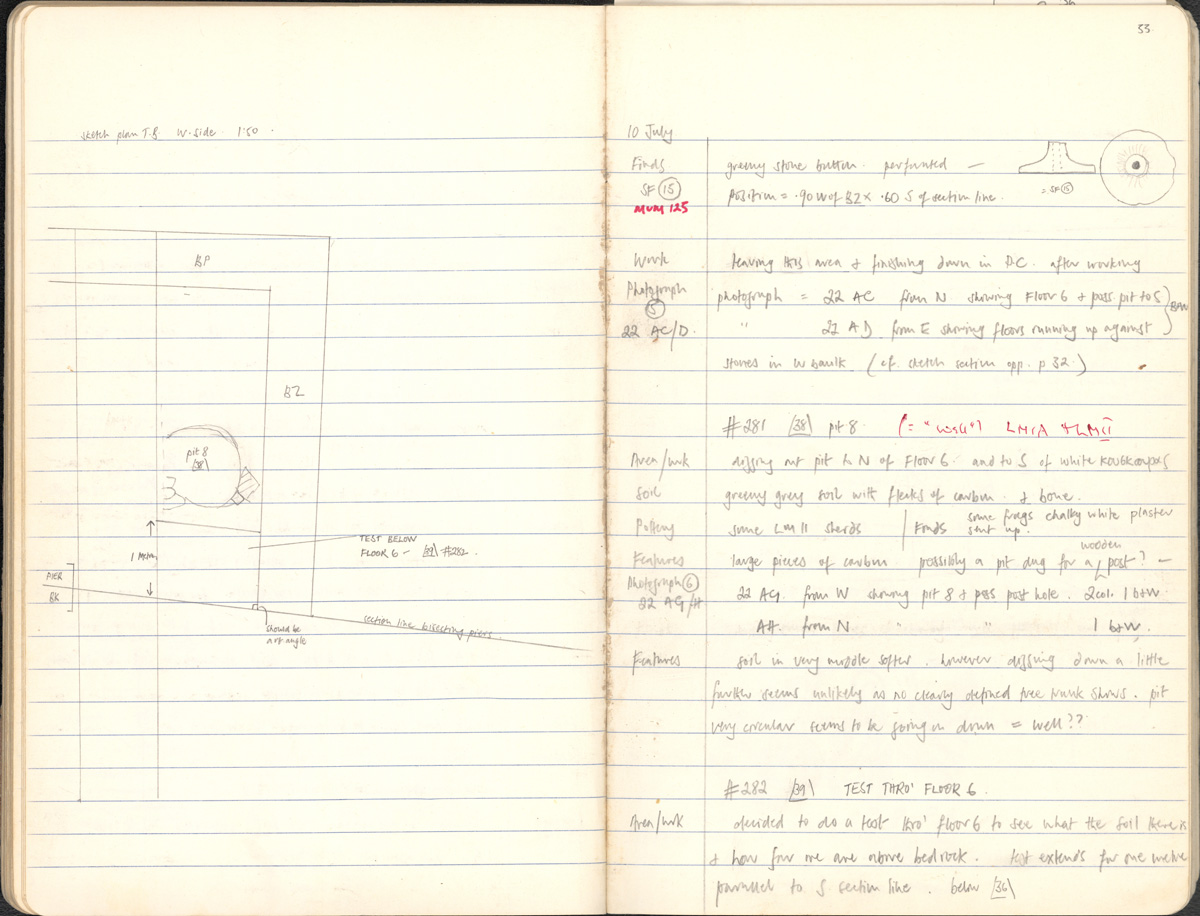 sketch plan T.8 W. side. 1:50.
BP
BZ
pit 8
/38\
1 Metre
TEST BELOW
FLOOR 6 - /39\ #282.
PIER
BK
should be
a rt angle
section line bisecting piers
33.
10 July
Finds greeny stone button. perforated —
SF 15 position = .90 W of BZ x .60 S of section line. = SF 15
MUM 125
Work leaving this area & finishing down in DC. after working
Photograph photograph = 22 AC from N showing Floor 6 + poss. pit to S } B+W
5
22 AC/D. " 22 AD from E showing floors running up against
stones in W baulk. (cf. sketch section opp. p 32.)
#281 /38\ pit 8 (= "well") LMIA + LMII
Area/wrk digging out pit to N of Floor 6 and to S of white
Soil greeny grey soil with flecks of carbon. & bone.
Pottery some LM II sherds Finds some frags chalky white plaster
sent up.
Features large pieces of carbon possibly a pit dug for a wooden post? —
Photograph 6 22 AG from W showing pit 8 + poss post hole. 2 col. 1 b+W
22 AG/H AH. from N " " 1 b+W.
Features soil in very middle softer. however digging down a little
further seems unlikely as no clearly defined tree trunk shows. pit
very circular seems to be going on down = well??
#282 /39\ TEST THRO' FLOOR 6.
Area/wrk decided to do a test thro' floor 6 to see what the soil there is
& how far we are above bedrock. test extends for one metre
parallel to S section line. below /36\